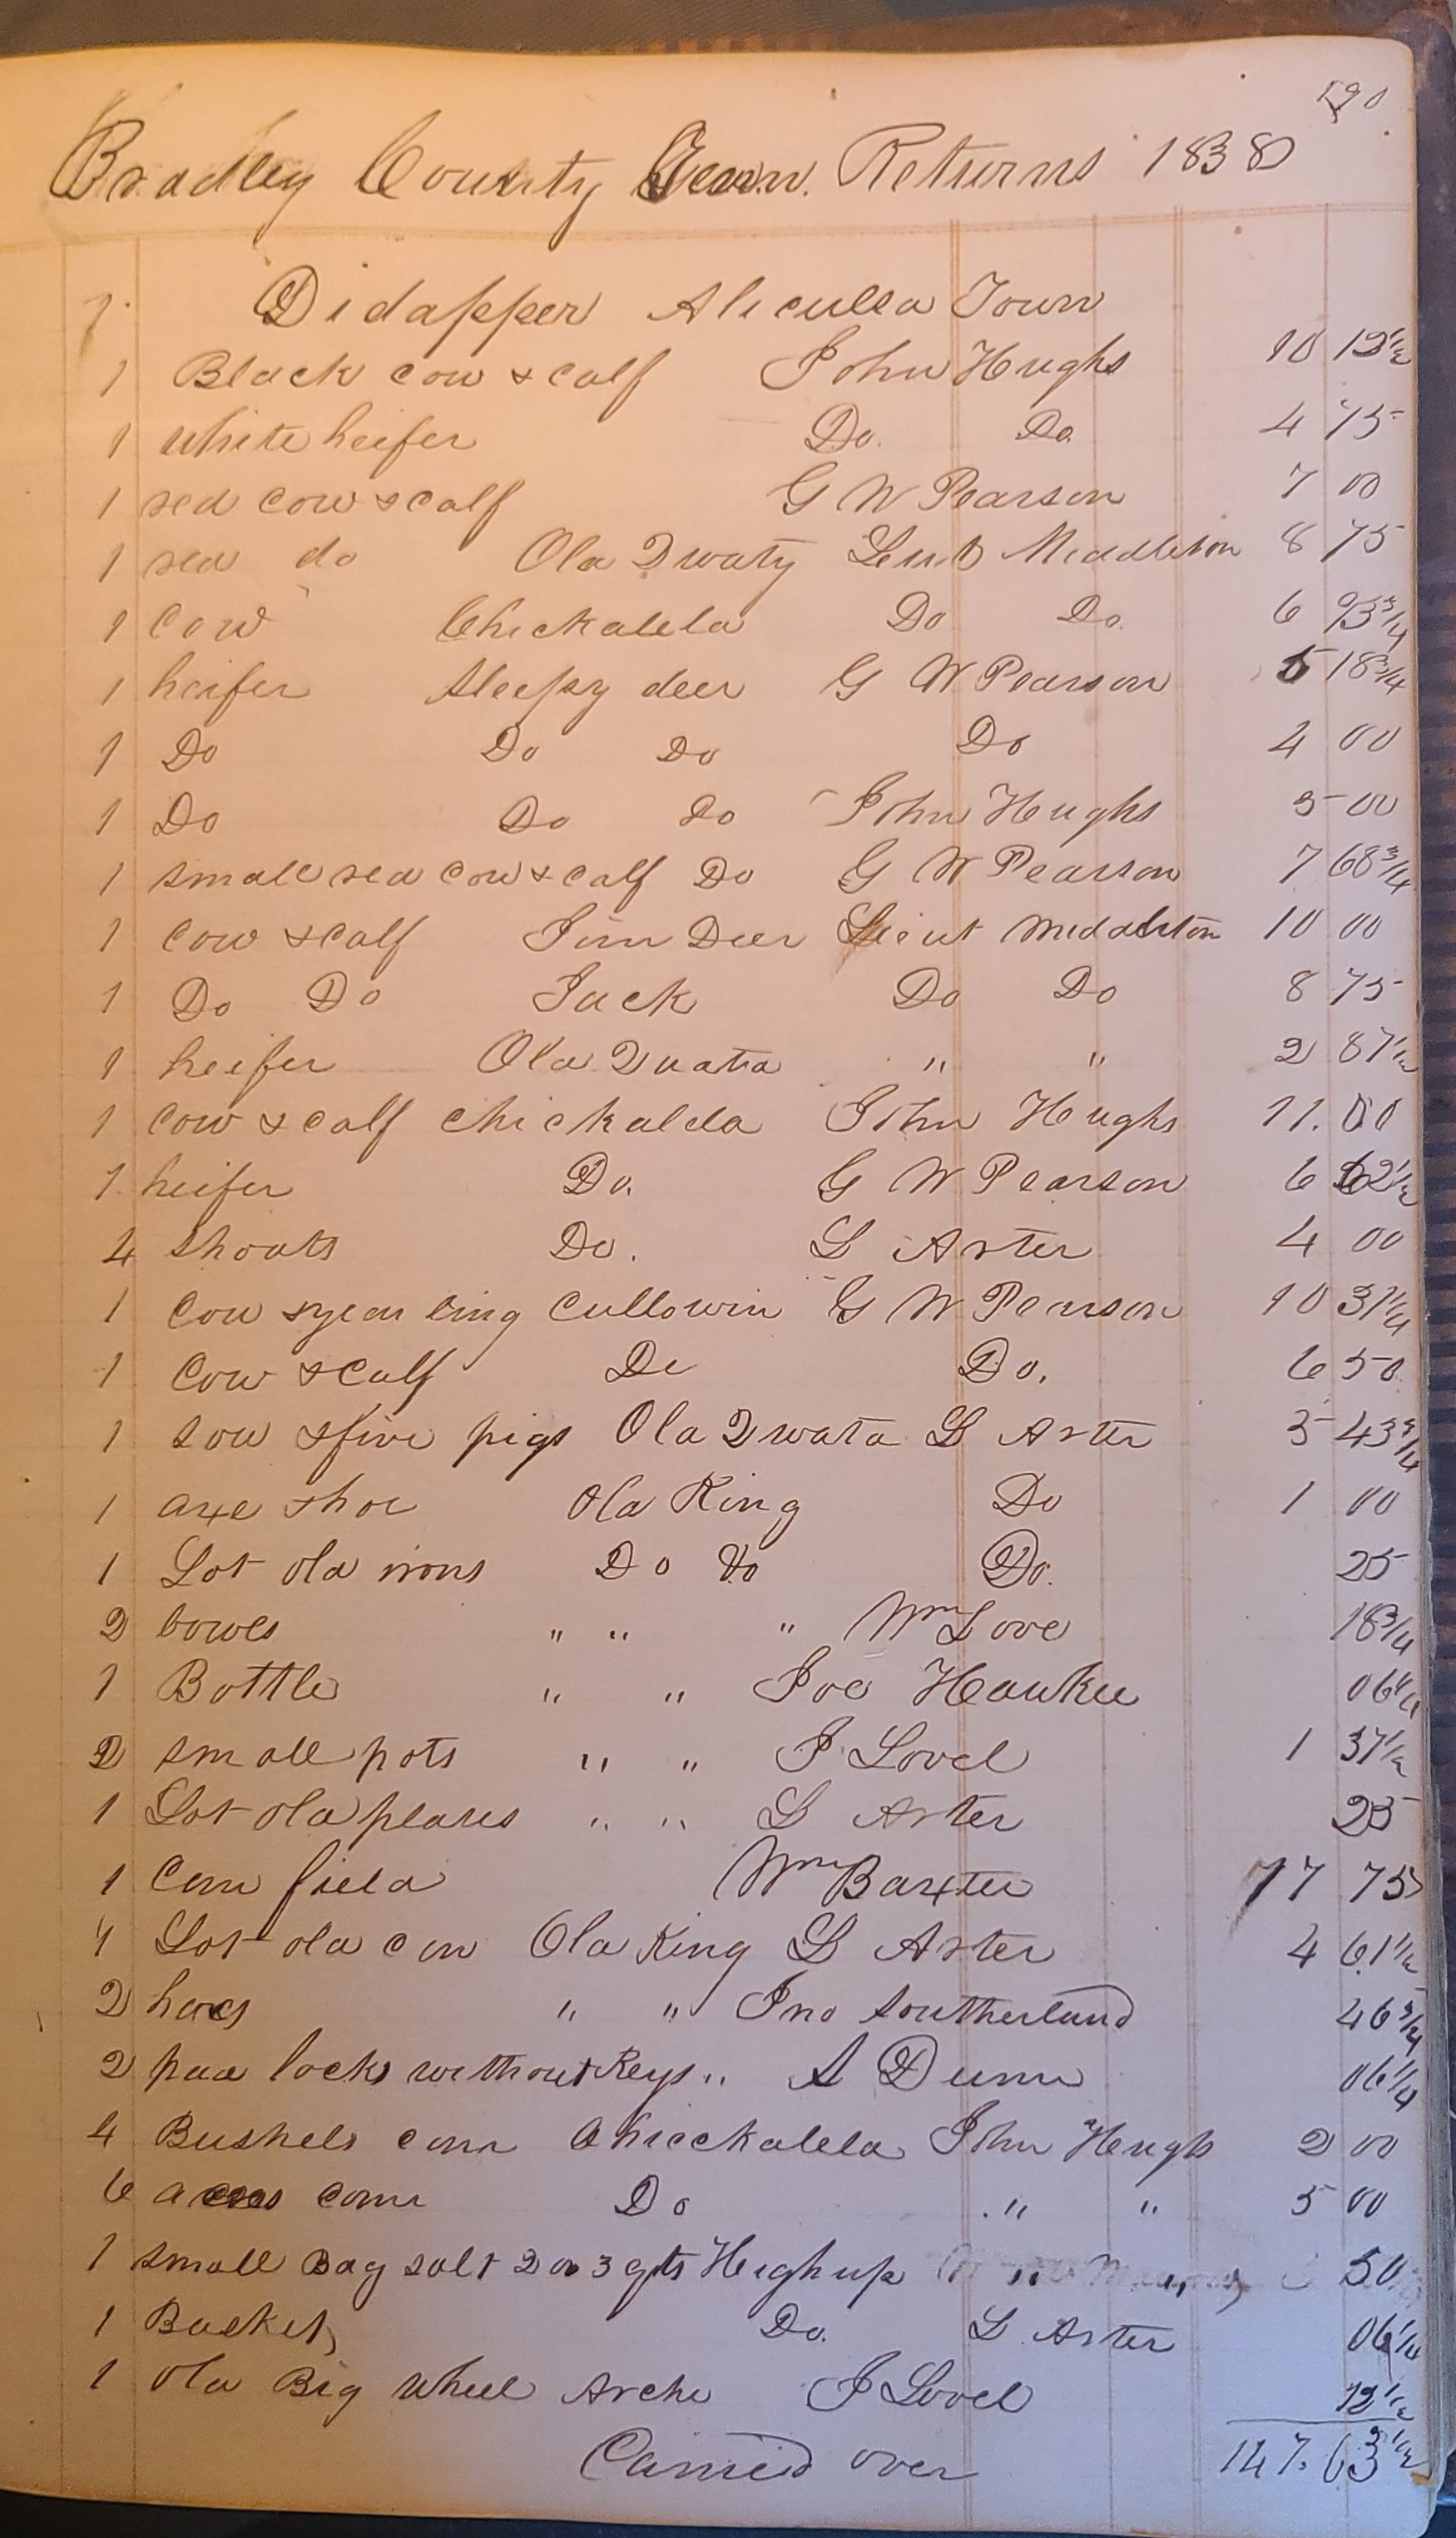 190
Bradley County Tenn. Returns 1838
Didapper Aliculla Town
1 Black cow & calf John Hughs 10 12 1/2
1 white heifer Do. Do. 4 75
1 red cow & calf G W Pearson 7 00
1 red do Old Qwaty Leut Middleton 8 75
1 Cow Chickalela Do Do. 6 93 3/4
1 heifer Sleepy deer G W Pearson 5 18 3/4
1 Do Do Do Do 4 00
1 Do Do do John Hughs 5 00
1 small red cow & calf Do G W Pearson 7 68 3/4
1 cow & calf Jim Deer Lieut Middleton 10 00
1 Do Do Jack Do Do 8 75
1 heifer Old Quata " " 2 87 1/2
1 cow & calf Chickalela John Hughs 11.00
1 heifer Do. G W Pearson 6 62 1/2
4 shoats Do. L Arter 4 00
1 cow & yearling Cullowin G W Pearson 10 31 1/4
1 Cow & Calf Do Do. 6 50
1 sow & five pigs Old Qwata L Arter 5 43 3/4
1 axe & hoe Old King Do 1 00
1 Lot old irons Do do Do. 25
2 bowls " " " Wm Love 18 3/4
1 Bottle " " Joe Hawkee 06 1/4
2 small pots " " J Lovel 1 37 1/2
1 Lot old plates " " L Arter 25
1 Corn field Wm Baxter 17 75
1 Lot old corn Old King L Arter 4 61 1/2
2 hoes " " Jno Southerland 46 3/4
2 pad locks without Keys " A Dunn 06 1/4
4 Bushels corn Chicckalela John Hughs 2 00
6 acres corn Do " " 5 00
1 small Bag salt 2 or 3 qts Heighup 50
1 Basket Do. L Arter 06 1/4
1 Old Big wheel Arche J Lovel 12 1/2
Carried over 147.63 1/2